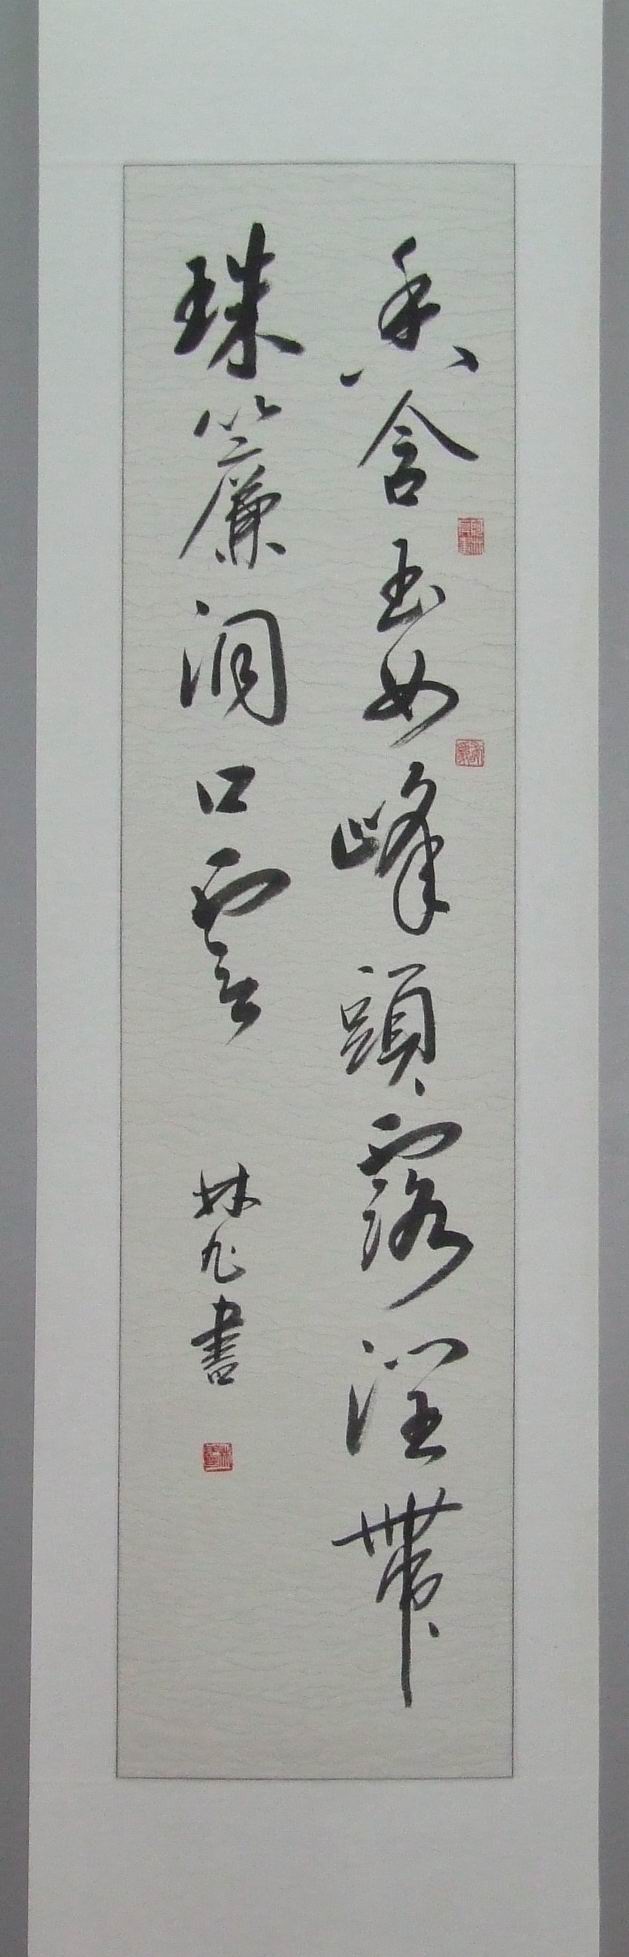 香含玉女峰頭露潤帶
珠簾洞口雲
林凡書